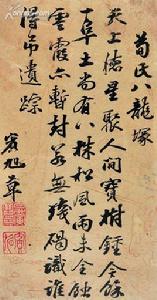 荀氏八龍塚
天上德星聚人間寶樹鍾今餘
一阜土尚有八株松風雨未全蝕
雲霞亦暫封若無殘碣識誰
得弔遺踪
旭草